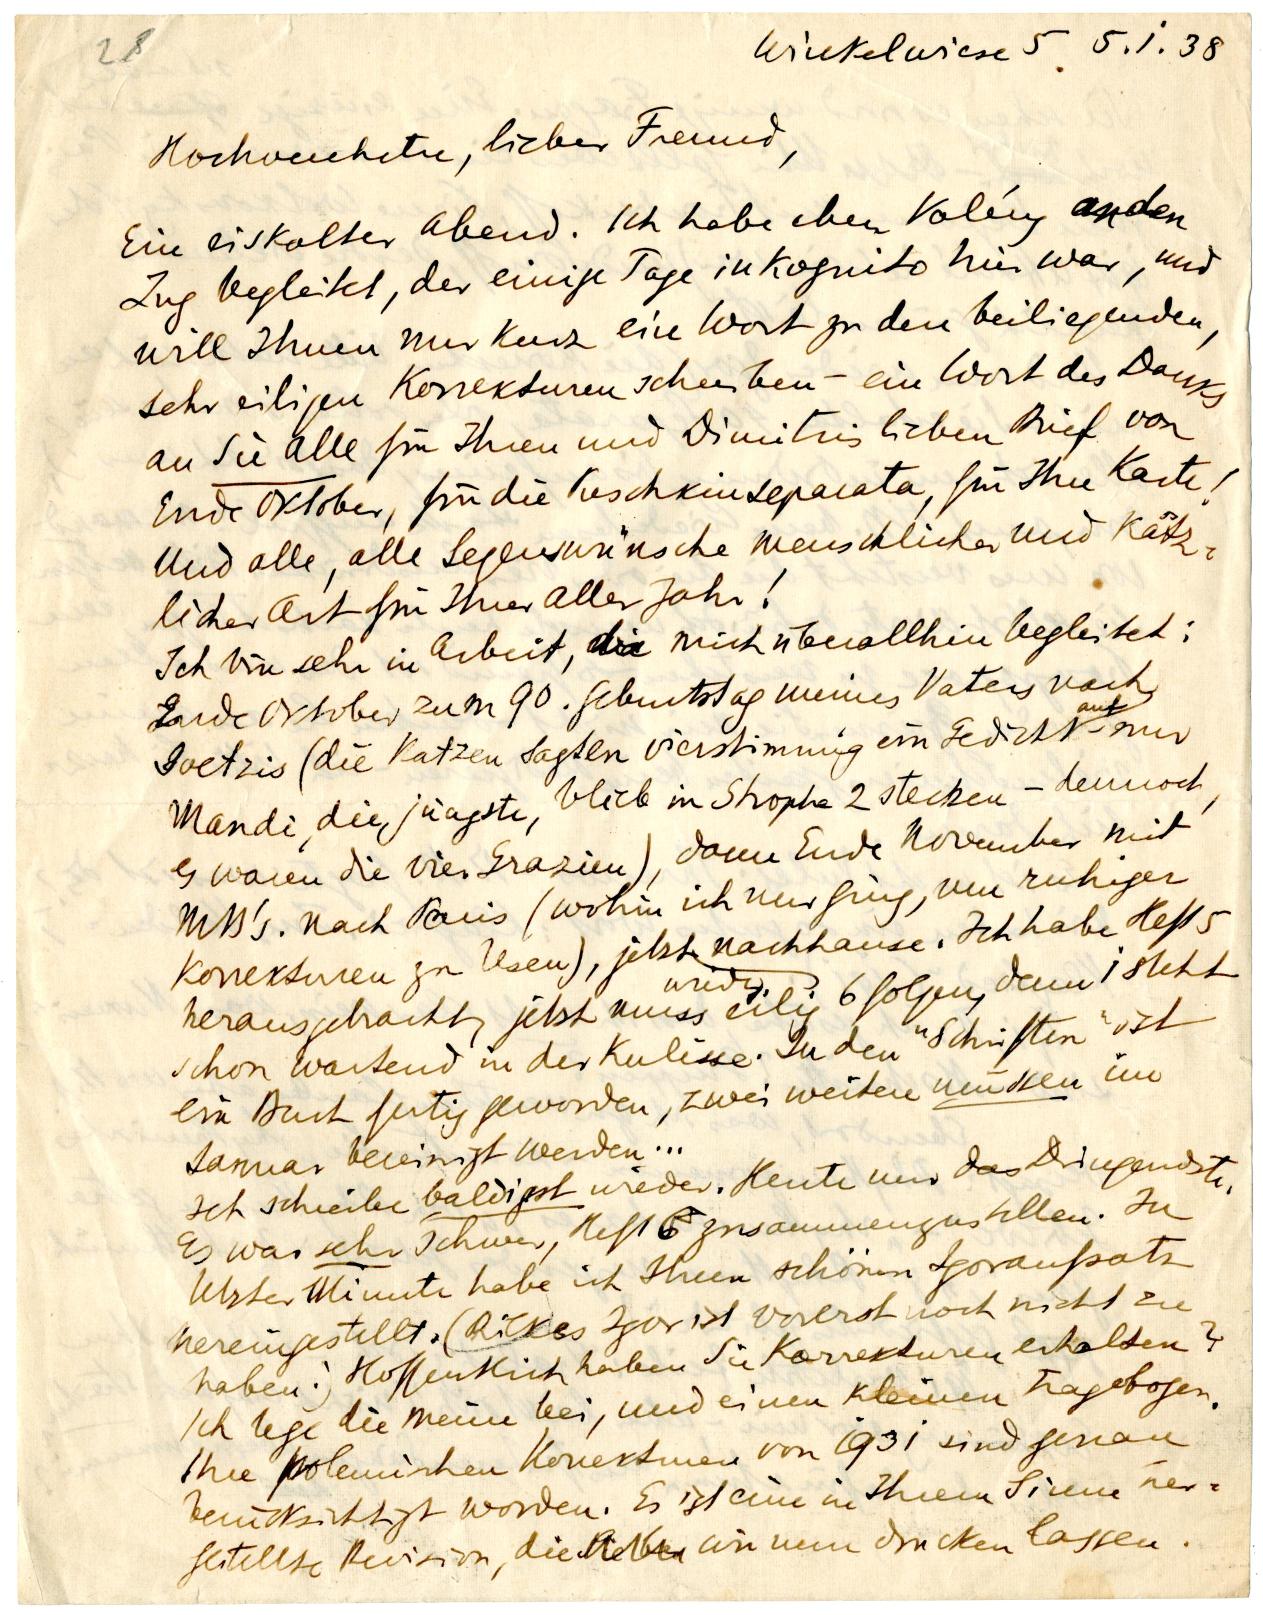 28
Winkelwiese 5 5.1.38
Hochverehrter, lieber Freund,
Ein eiskalter Abend. Ich habe eben Valéry an den
Zug begleitet, der einige Tage inkognito hier war, und
will Ihnen nur kurz ein Wort zu den beiliegenden,
sehr eiligen Korrekturen schreiben – ein Wort des Danks
an Sie alle für Ihren und Dimitris lieben Brief von
Ende Oktober, für die Puschkinseparata, für Ihre Karte!
Und alle, alle Segenswünsche menschlicher und kätz-
licher Art für Ihrer aller Jahr!
Ich bin sehr in Arbeit, die mich überallhin begleitet:
Ende Oktober zum 90. Geburtstag meines Vaters nach
Goetzis (die Katzen sagten vierstimmig ein Gedicht auf – nur
Mandi, die jüngste, blieb in Strophe 2 stecken – dennoch,
es waren die vier Grazien), dann Ende November mit
MB's. nach Paris (wohin ich nur ging, um ruhiger
Korrekturen zu lesen), jetzt nachhause. Ich habe Heft 5
herausgebracht, jetzt muss wieder eilig 6 folgen, denn 1 steht
schon wartend in der Kulisse. In den "Schriften" ist
ein Buch fertig geworden, zwei weitere müssen im
Januar bereinigt werden...
Ich schreibe baldigst wieder. Heute nur das Dringendste.
Es war sehr schwer, Heft 6 zusammenzustellen. In
letzter Minute habe ich Ihren schönen Igoraufsatz
hereingestellt. (Rilkes Igor ist vorerst noch nicht zu
haben.) Hoffentlich haben Sie Korrekturen erhalten?
Ich lege die meine bei, und einen kleinen Fragebogen.
Ihre polemischen Korrekturen von 1931 sind genau
berücksichtigt worden. Es ist eine in Ihrem Sinne her-
gestellte Revision, die wir nun drucken lassen.